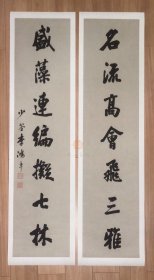 名流高會飛三雅
盛藻連編擬七林
少荃李鴻章